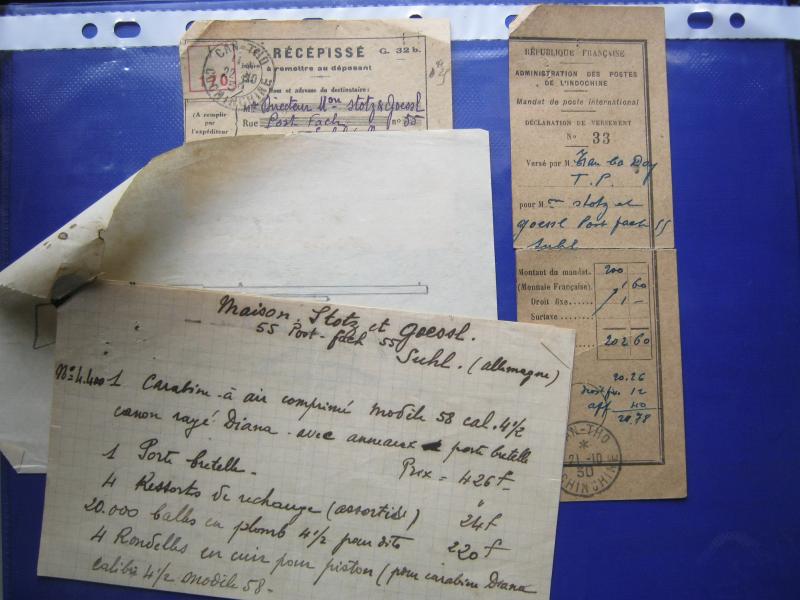 RÉCÉPISSÉ G. 32 b.
à remettre au déposant
CAN-THO
COCHINCHINE
Nom et adresse du destinataire:
(A remplir
par
l'expéditeur
M Directeur Mon Stotz & Goessl
Rue Post Fach n° 55
RÉPUBLIQUE FRANÇAISE
ADMINISTRATION DES POSTES
DE L'INDOCHINE
Mandat de poste international
DÉCLARATION DE VERSEMENT
No 33
Versé par M. Tran ba Day
T. P.
pour M on Stotz et
Goessl Post fach 55
Suhl
Montant du mandat. 200
(Monnaie Française). 1 60
Droit fixe 1 —
Surtaxe
202 60
20.26
12
aff 40
20.78
CAN-THO
21-10
30
COCHINCHINE
Maison Stotz et Goessl.
55 Post-fach 55
Suhl. (allemagne)
No 4.400 1 Carabine à air comprimé modèle 58 cal. 4 1/2
canon rayé Diana avec anneaux porte bretelle
Prix = 426 f
1 Porte bretelle - "
4 Ressorts de rechange (assortis) 24 f
20.000 balles en plomb 4 1/2 pour dito 220 f
4 Rondelles en cuir pour piston (pour carabine Diana
calibre 4 1/2 modèle 58 -